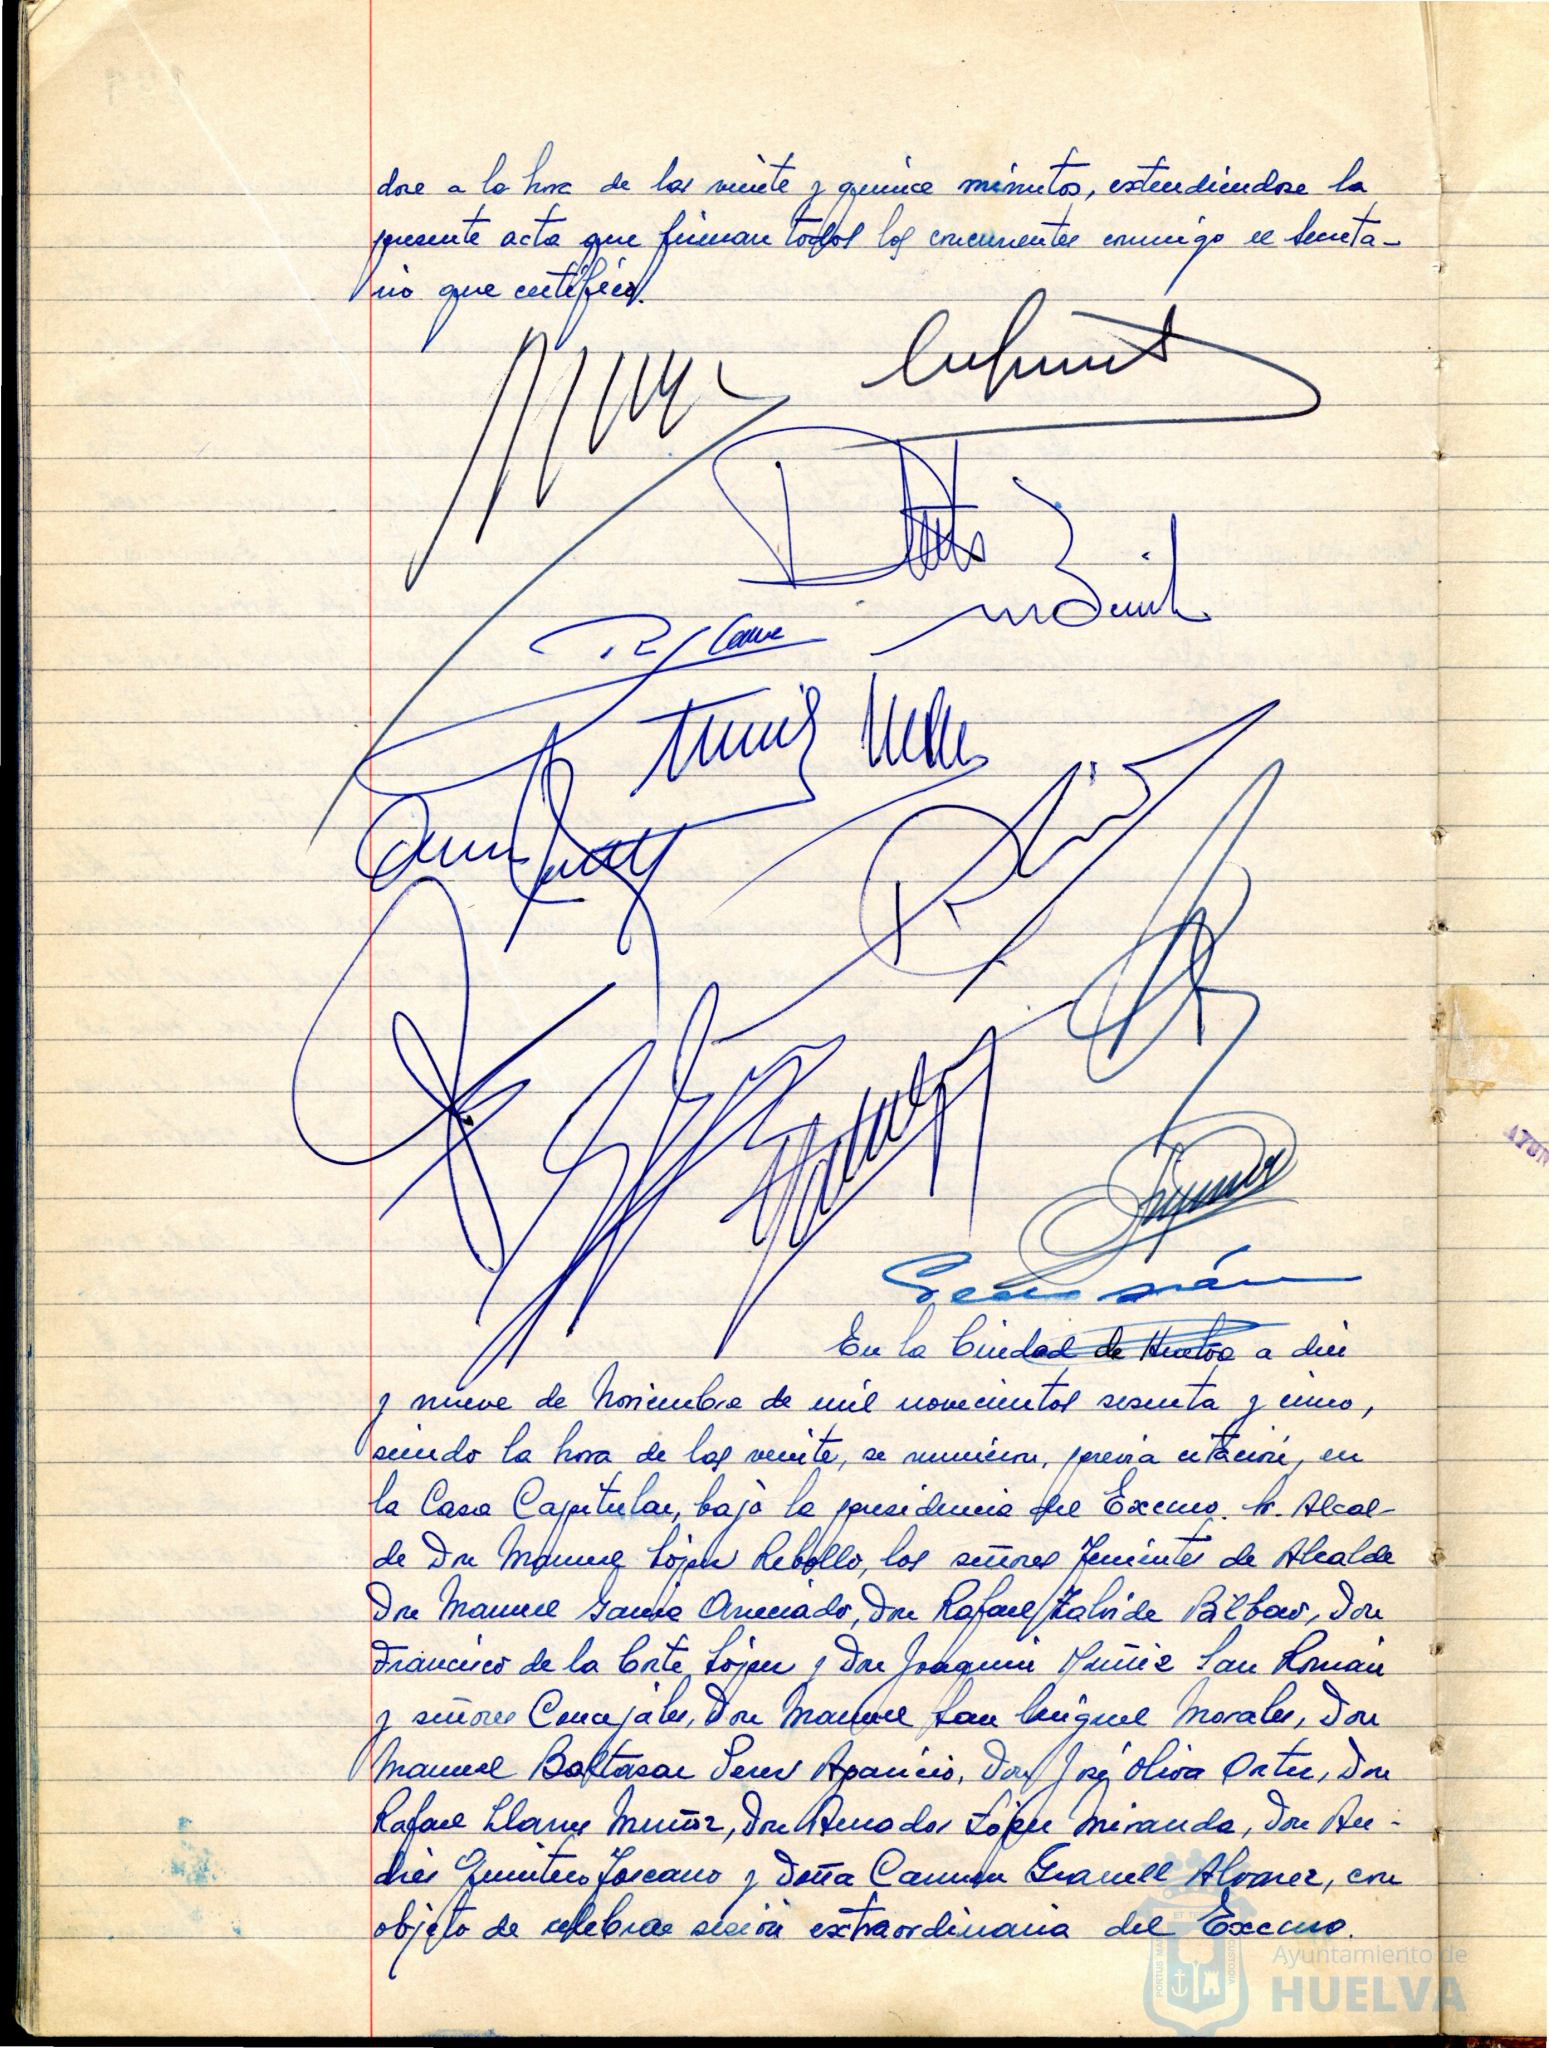 dose a la hora de las veinte y quince minutos, extendiendose la
presente acta que firman todos los concurrentes conmigo el Secreta-
rio que certifico.
En la Ciudad de Huelva a diez
y nueve de Noviembre de mil novecientos sesenta y cinco,
siendo la hora de las veinte, se reunieron, previa citación, en
la Casa Capitular, bajo la presidencia del Excmo. Sr. Alcal-
de Don Manuel López Rebollo, los señores Tenientes de Alcalde
Don Manuel García Don Rafael Zalvide Bilbao, Don
Francisco de la Corte López y Don Joaquin Muñiz San Román
y señores Concejales, Don Manuel San Miguel Morales, Don
Manuel Baltasar Aparicio, Don José Oliva Ortiz, Don
Rafael Llanes Muñoz, Don Amador López Miranda, Don An-
drés Quintero Toscano y Doña Carmen Granell Alvarez, con
objeto de celebrar sesión extraordinaria del Excmo.
Ayuntamiento de
HUELVA